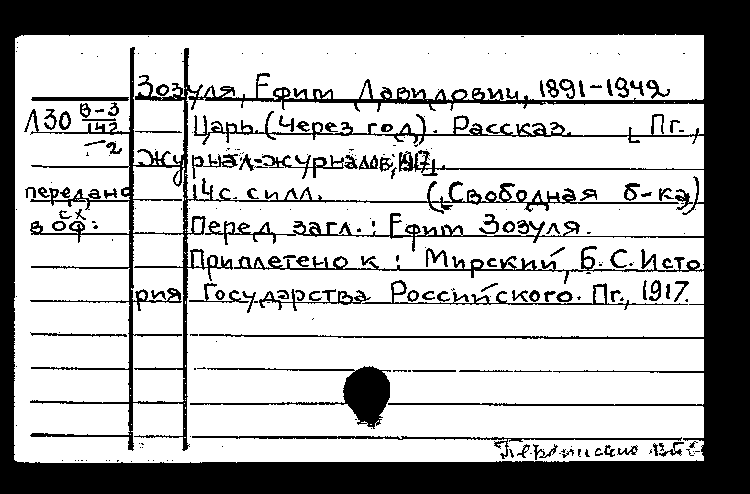 Зозуля, Ефим Давидович, 1891-1942
Л30 В-3/142-2
Царь. (Через год). Рассказ. [Пг.,
Журнал-журналов, 1917].
передано в ОФ: сх
14 с. с илл. ([Свободная б-ка])
Перед загл.: Ефим Зозуля.
Приплетено к: Мирский, Б. С. Исто
рия Государства Российского. Пг., 1917.